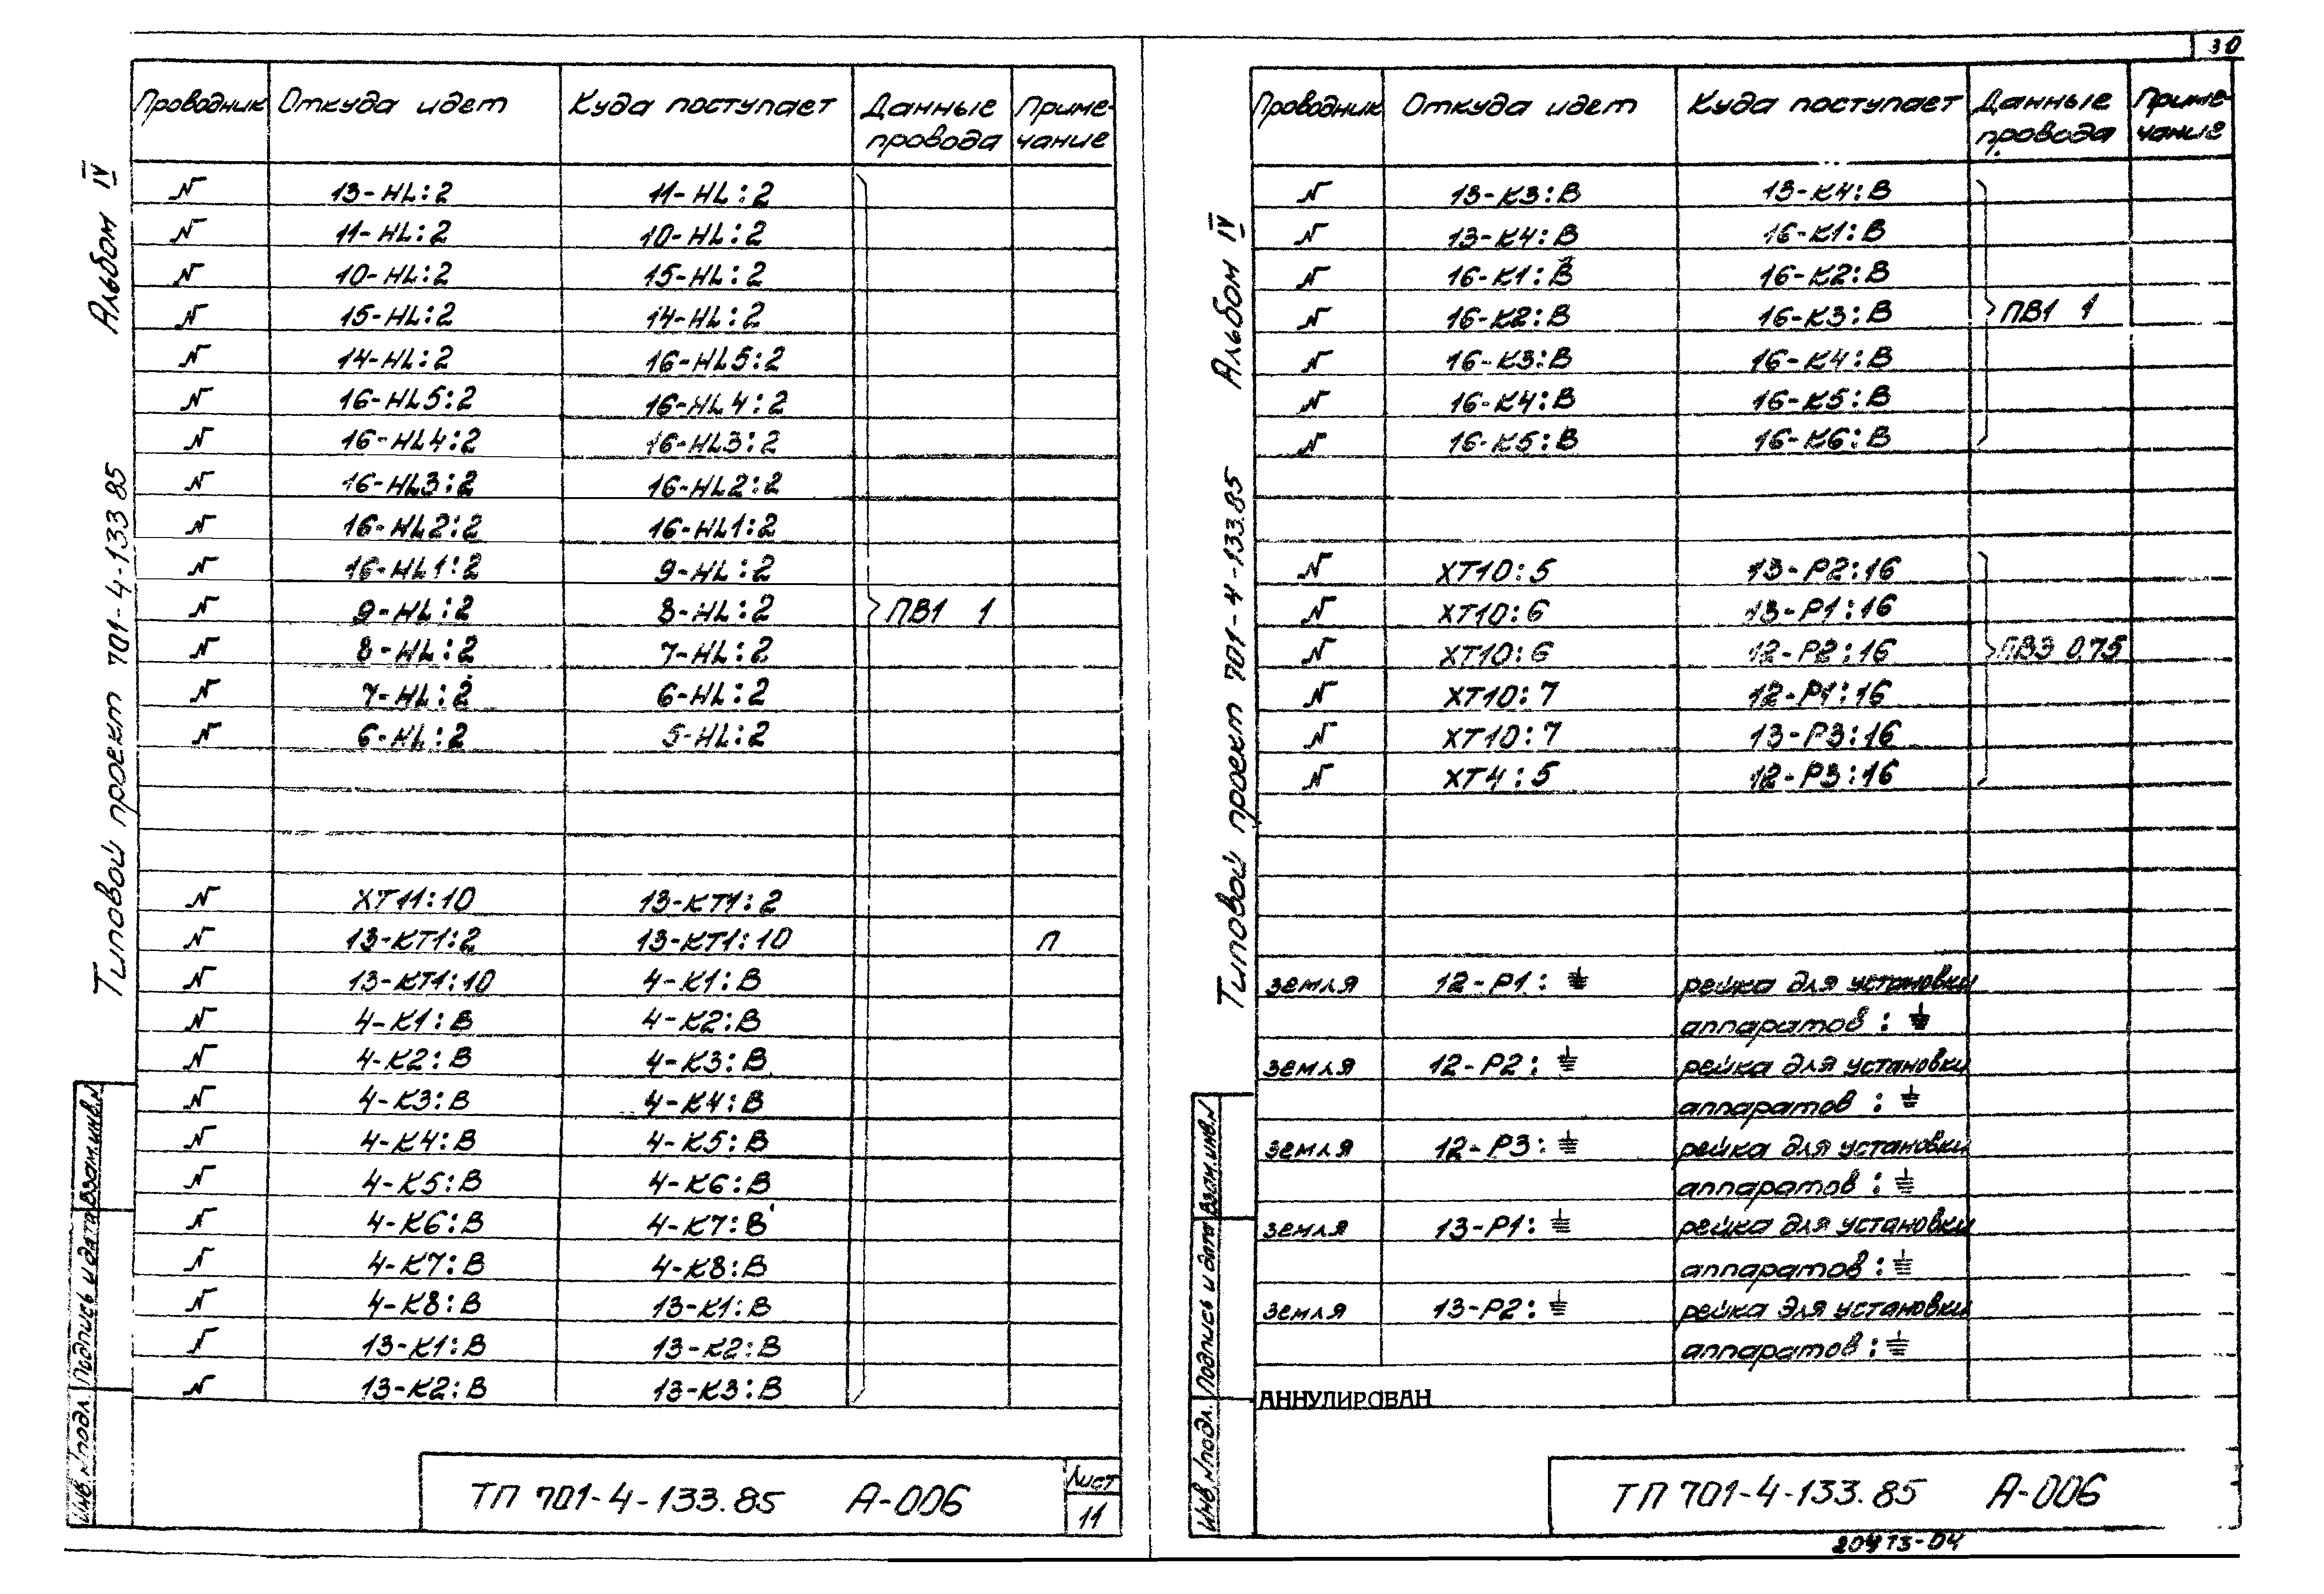 30
Альбом IV
Типовой проект 701-4-133 85
Проводник Откуда идет Куда поступает Данные провода Примечание
N 13-HL:2 11-HL:2
N 11-HL:2 10-HL:2
N 10-HL:2 15-HL:2
N 15-HL:2 14-HL:2
N 14-HL:2 16-HL5:2
N 16-HL5:2 16-HL4:2
N 16-HL4:2 16-HL3:2
N 16-HL3:2 16-HL2:2
N 16-HL2:2 16-HL1:2
N 16-HL1:2 9-HL:2
N 9-HL:2 8-HL:2 ПВ1 1
N 8-HL:2 7-HL:2
N 7-HL:2 6-HL:2
N 6-HL:2 5-HL:2
N XT11:10 13-KT1:2
N 13-KT1:2 13-KT1:10 П
N 13-KT1:10 4-K1:B
N 4-K1:B 4-K2:B
N 4-K2:B 4-K3:B
N 4-K3:B 4-K4:B
N 4-K4:B 4-K5:B
N 4-K5:B 4-K6:B
N 4-K6:B 4-K7:B
N 4-K7:B 4-K8:B
N 4-K8:B 13-K1:B
N 13-K1:B 13-K2:B
N 13-K2:B 13-K3:B
Инв. N подл. Подпись и дата Взам.инв.N
ТП 701-4-133.85 А-006
Лист
11
Альбом IV
Типовой проект 701-4-133.85
Проводник Откуда идет Куда поступает Данные провода Примечание
N 13-K3:B 13-K4:B
N 13-K4:B 16-K1:B
N 16-K1:B 16-K2:B
N 16-K2:B 16-K3:B ПВ1 1
N 16-K3:B 16-K4:B
N 16-K4:B 16-K5:B
N 16-K5:B 16-K6:B
N XT10:5 13-P2:16
N XT10:6 13-P1:16
N XT10:6 12-P2:16 ПВ3 0,75
N XT10:7 12-P1:16
N XT10:7 13-P3:16
N XT4:5 12-P3:16
земля 12-P1:⏚ рейка для установки
аппаратов:⏚
земля 12-P2:⏚ рейка для установки
аппаратов:⏚
земля 12-P3:⏚ рейка для установки
аппаратов:⏚
земля 13-P1:⏚ рейка для установки
аппаратов:⏚
земля 13-P2:⏚ рейка для установки
аппаратов:⏚
АННУЛИРОВАН
Инв. N подл. Подпись и дата Взам.инв.N
ТП 701-4-133.85 А-006
20473-04